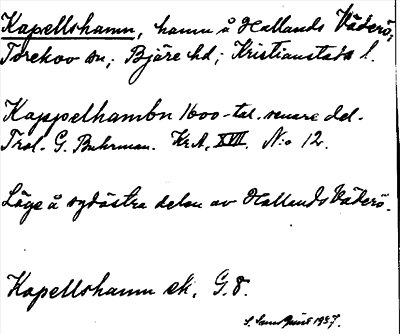 Kapellshamn, hamn å Hallands Väderö,
Torekov sn; Bjäre hd; Kristianstads l.
Kappelhambn 1600-tal. senare del.
Trol. G. Buhrman. Kr.A. XVII. N:o 12.
Läge å sydöstra delen av Hallands Väderö.
Kapellshamn ek. G. 8.
S. 1937.